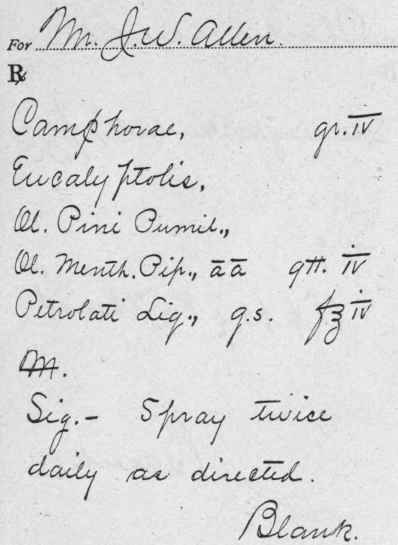 For Mr. J. W. Allen.
℞
Camphorae, gr. iv
Eucalyptolis,
Ol. Pini Pumil.,
Ol. Menth. Pip., āā gtt. iv
Petrolati Liq., q.s. f℥ iv
M.
Sig.- Spray twice
daily as directed.
Blank.